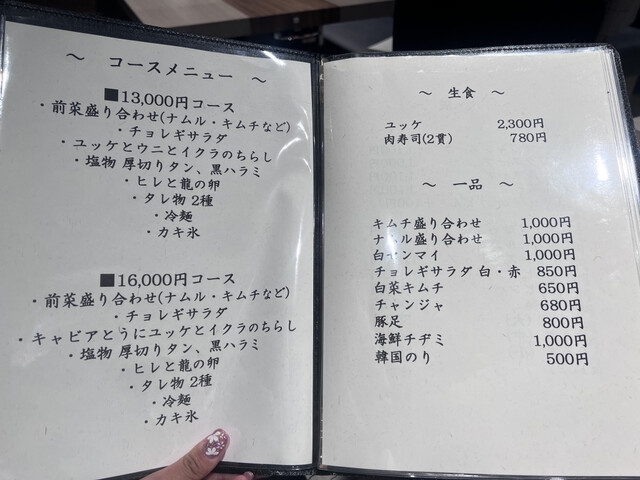 ~ コースメニュー ~
■13,000円コース
・前菜盛り合わせ(ナムル・キムチなど)
・チョレギサラダ
・ユッケとウニとイクラのちらし
・塩物 厚切りタン、黒ハラミ
・ヒレと龍の卵
・タレ物 2種
・冷麺
・カキ氷
■16,000円コース
・前菜盛り合わせ(ナムル・キムチなど)
・チョレギサラダ
・キャビアとうにユッケとイクラのちらし
・塩物 厚切りタン、黒ハラミ
・ヒレと龍の卵
・タレ物 2種
・冷麺
・カキ氷
~ 生食 ~
ユッケ 2,300円
肉寿司(2貫) 780円
~ 一品 ~
キムチ盛り合わせ 1,000円
ナムル盛り合わせ 1,000円
白センマイ 1,000円
チョレギサラダ 白・赤 850円
白菜キムチ 650円
チャンジャ 680円
豚足 800円
海鮮チヂミ 1,000円
韓国のり 500円